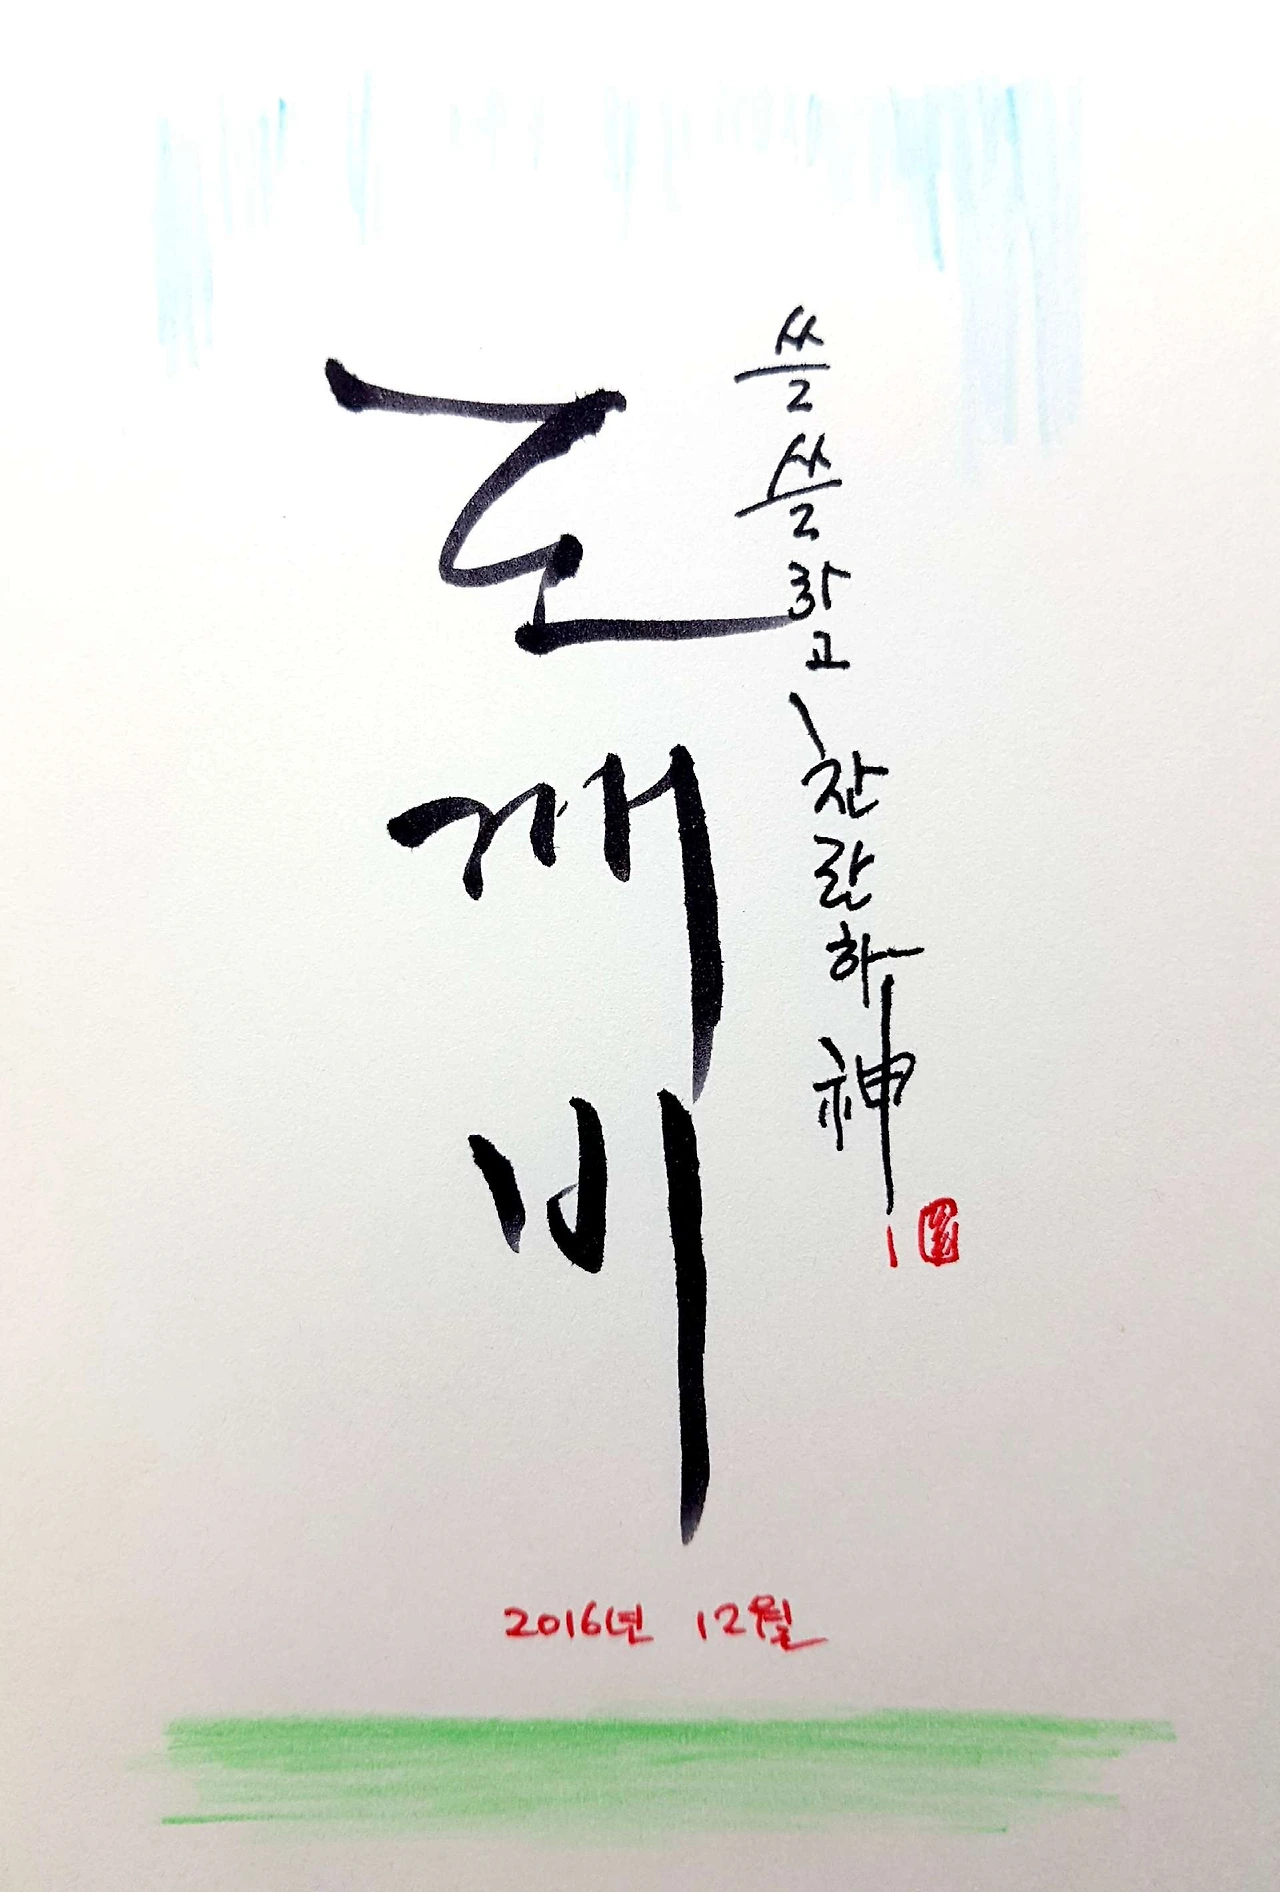 도깨비
쓸쓸하고 찬란하神
2016년 12월